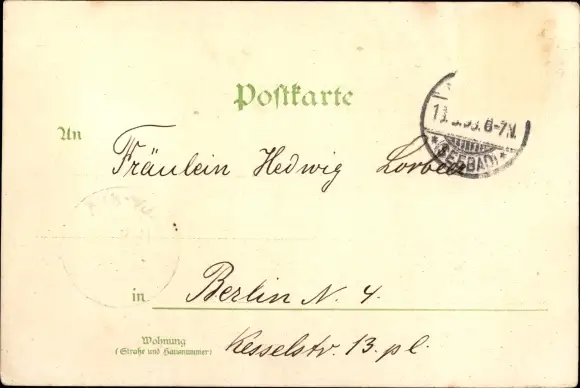 Postkarte
An Fräulein Hedwig Lorbeer
6-7N.
* (SEEBAD) *
in Berlin N. 4.
Wohnung
(Straße und Hausnummer)
Kesselstr. 13. pl.